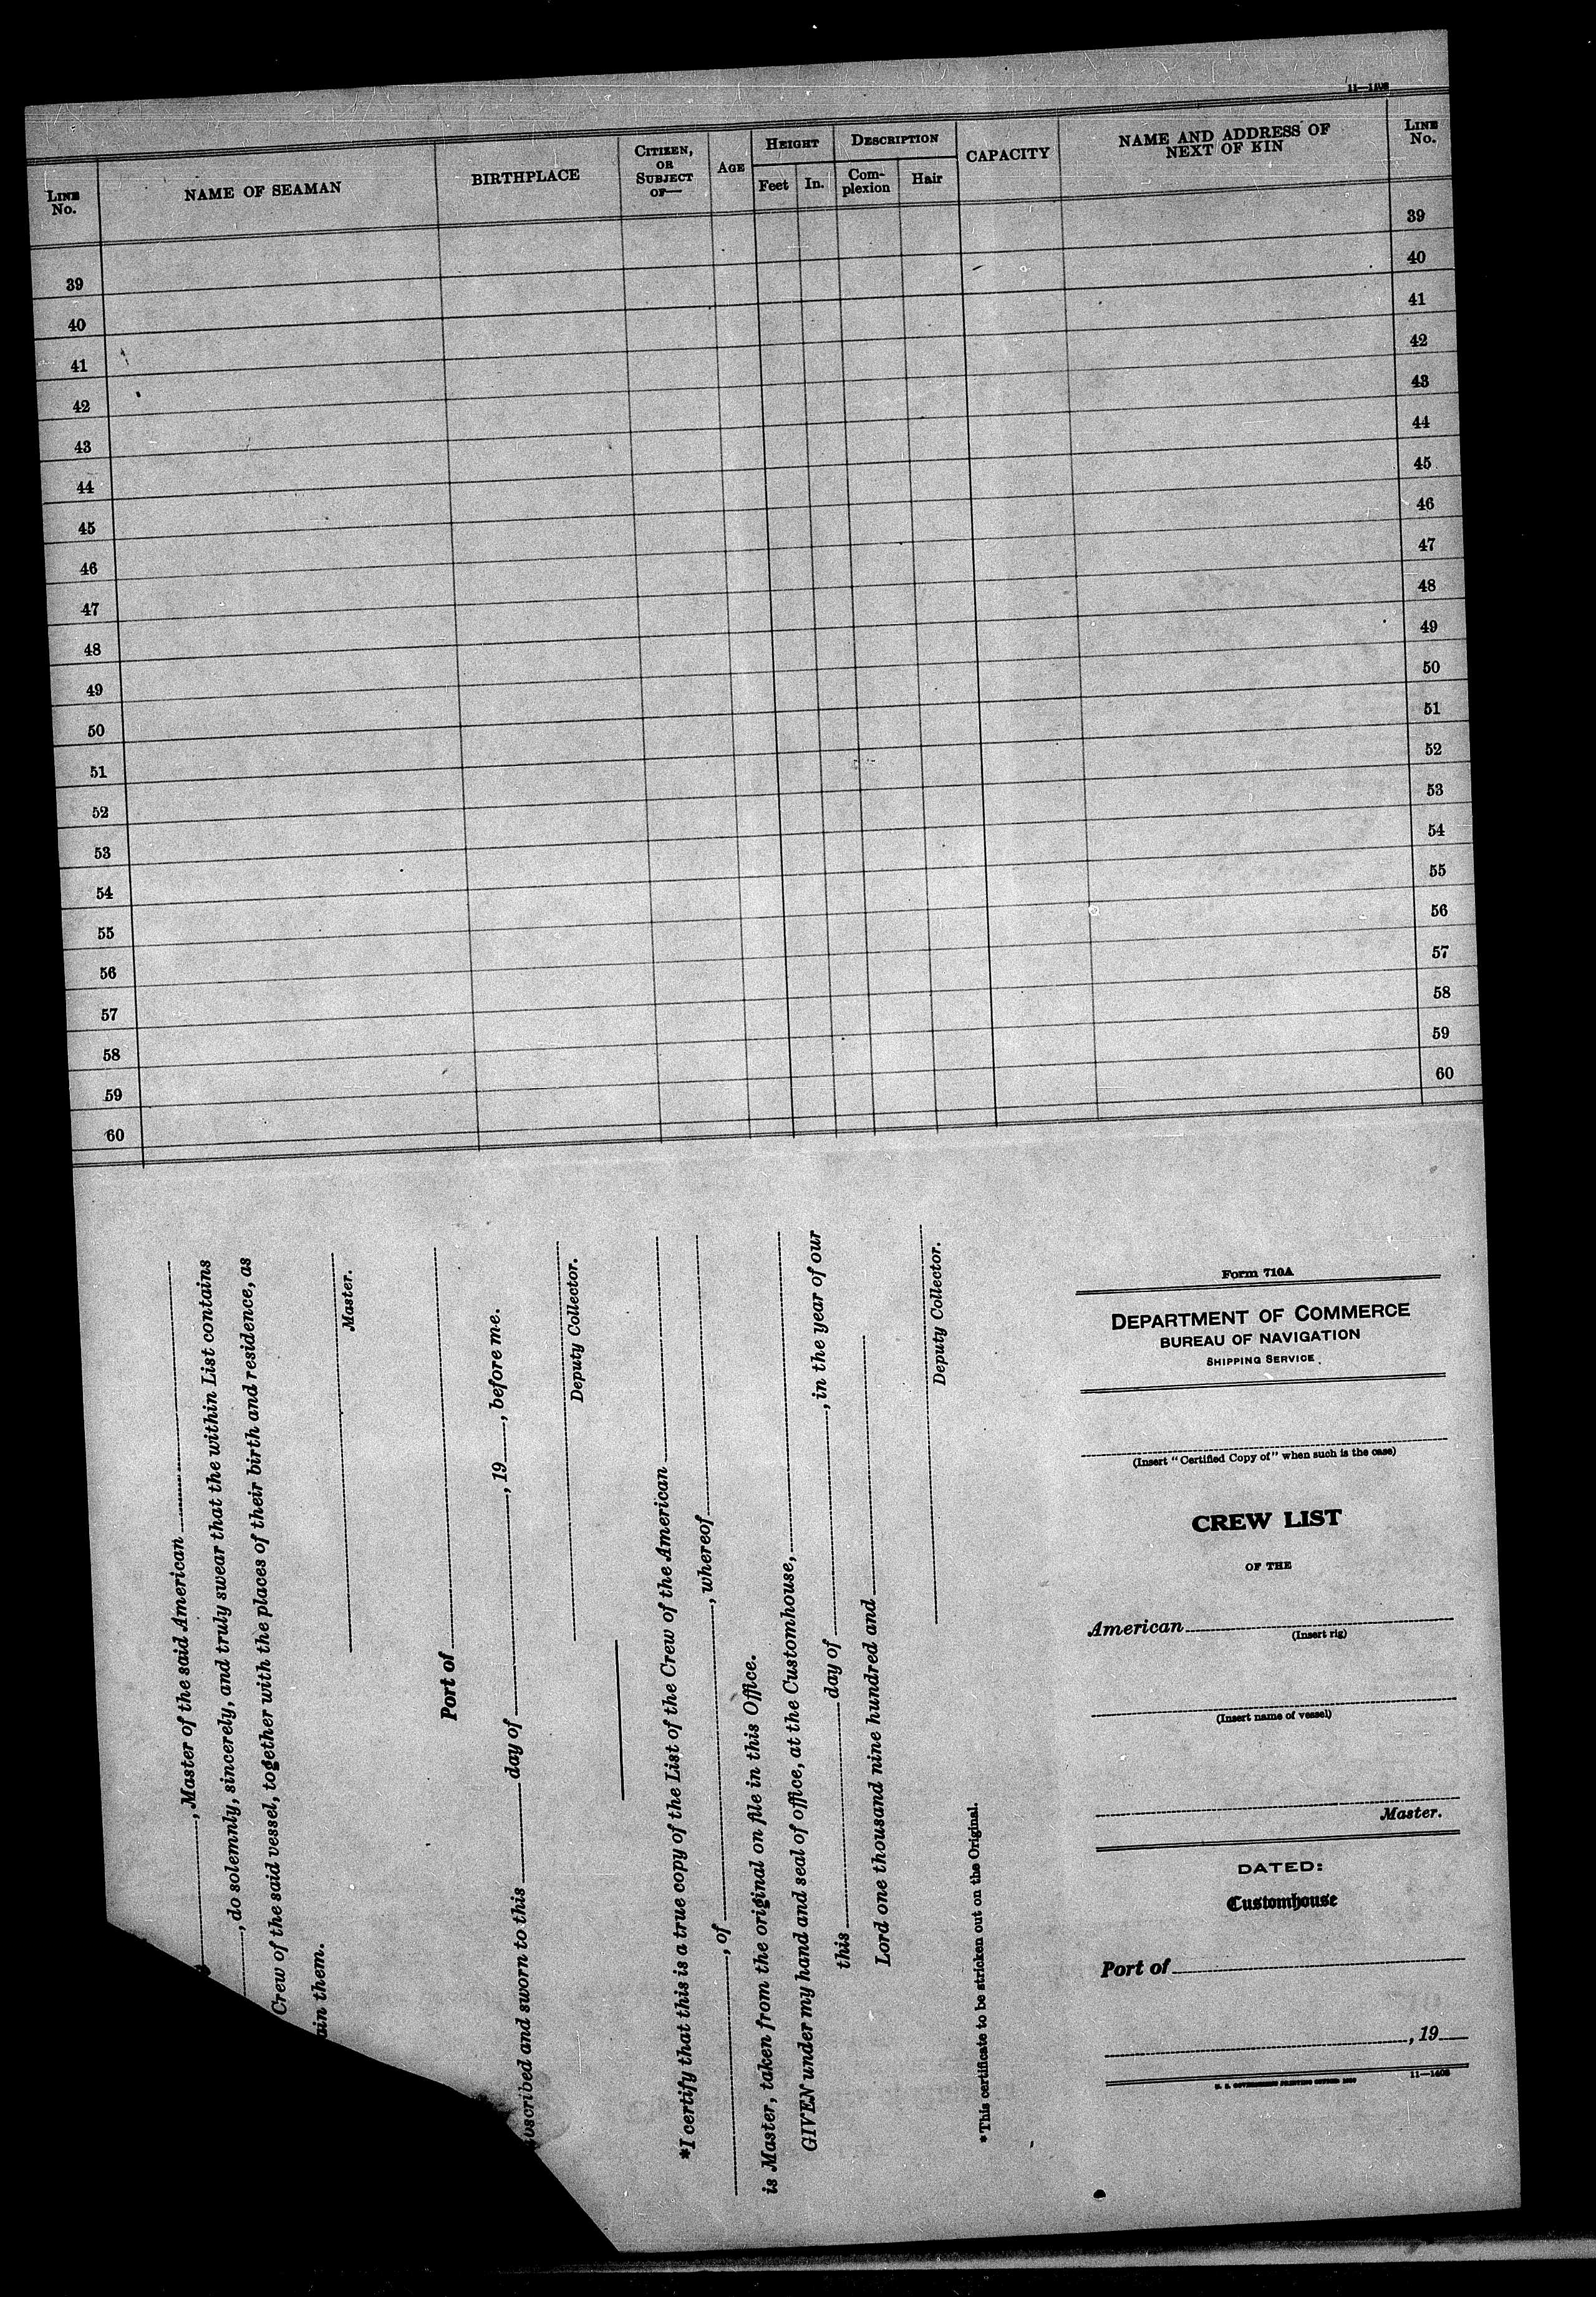 11—1408
LINE No. NAME OF SEAMAN BIRTHPLACE CITIZEN, OR SUBJECT OF— AGE HEIGHT Feet In. DESCRIPTION Com-plexion Hair CAPACITY NAME AND ADDRESS OF NEXT OF KIN LINE No.
39 39
40 40
41 41
42 42
43 43
44 44
45 45
46 46
47 47
48 48
49 49
50 50
51 51
52 52
53 53
54 54
55 55
56 56
57 57
58 58
59 59
60 60
, Master of the said American
, do solemnly, sincerely, and truly swear that the within List contains
Crew of the said vessel, together with the places of their birth and residence, as
ain them.
Master.
Port of
bscribed and sworn to this day of , 19 , before me.
Deputy Collector.
*I certify that this is a true copy of the List of the Crew of the American
, of , whereof
is Master, taken from the original on file in this Office.
GIVEN under my hand and seal of office, at the Customhouse,
this day of , in the year of our
Lord one thousand nine hundred and
Deputy Collector.
*This certificate to be stricken out on the Original.
Form 710A
DEPARTMENT OF COMMERCE
BUREAU OF NAVIGATION
SHIPPING SERVICE
(Insert "Certified Copy of" when such is the case)
CREW LIST
OF THE
American
(Insert rig)
(Insert name of vessel)
Master.
DATED:
Customhouse
Port of
, 19
U. S. GOVERNMENT PRINTING OFFICE 11—1408